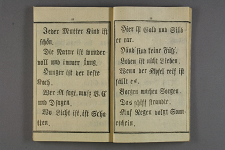 Jeder Mutter Kind ist
schön.
Die Natur ist wunder
voll und immer jung.
Hunger ist der beste
Koch.
Wer A sagt, muß B. C
und D sagen.
Wo Licht ist, ist Scha
ten.
Hier ist Gold und Silb
er nur.
Dank sind keine Füße.
Loben ist nicht Lieben.
Wenn der Apfel reif ist
fällt er.
Borgen machen Sorgen.
Das schiff strandte.
Auf Regen folgt Sonn
enschein.